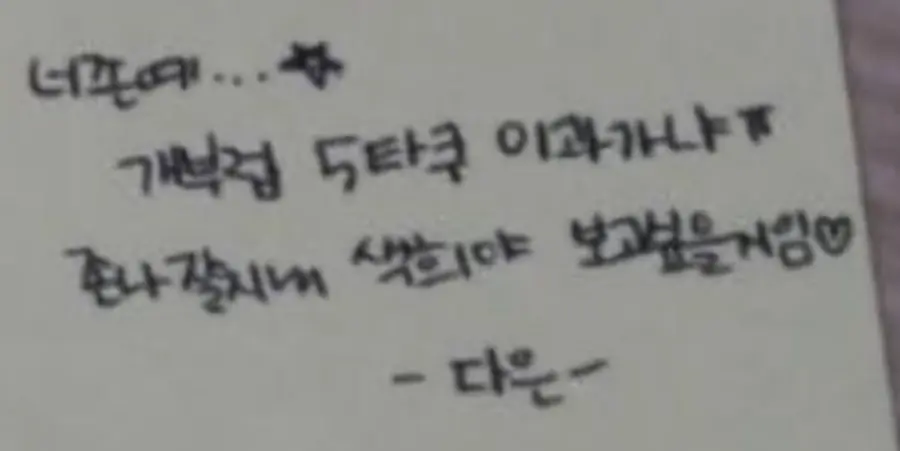 너프예...☆
개부럽 5타쿠 이과가냐ㅠ
존나 잘지내 색희야 보고싶을거임♡
- 다은 -